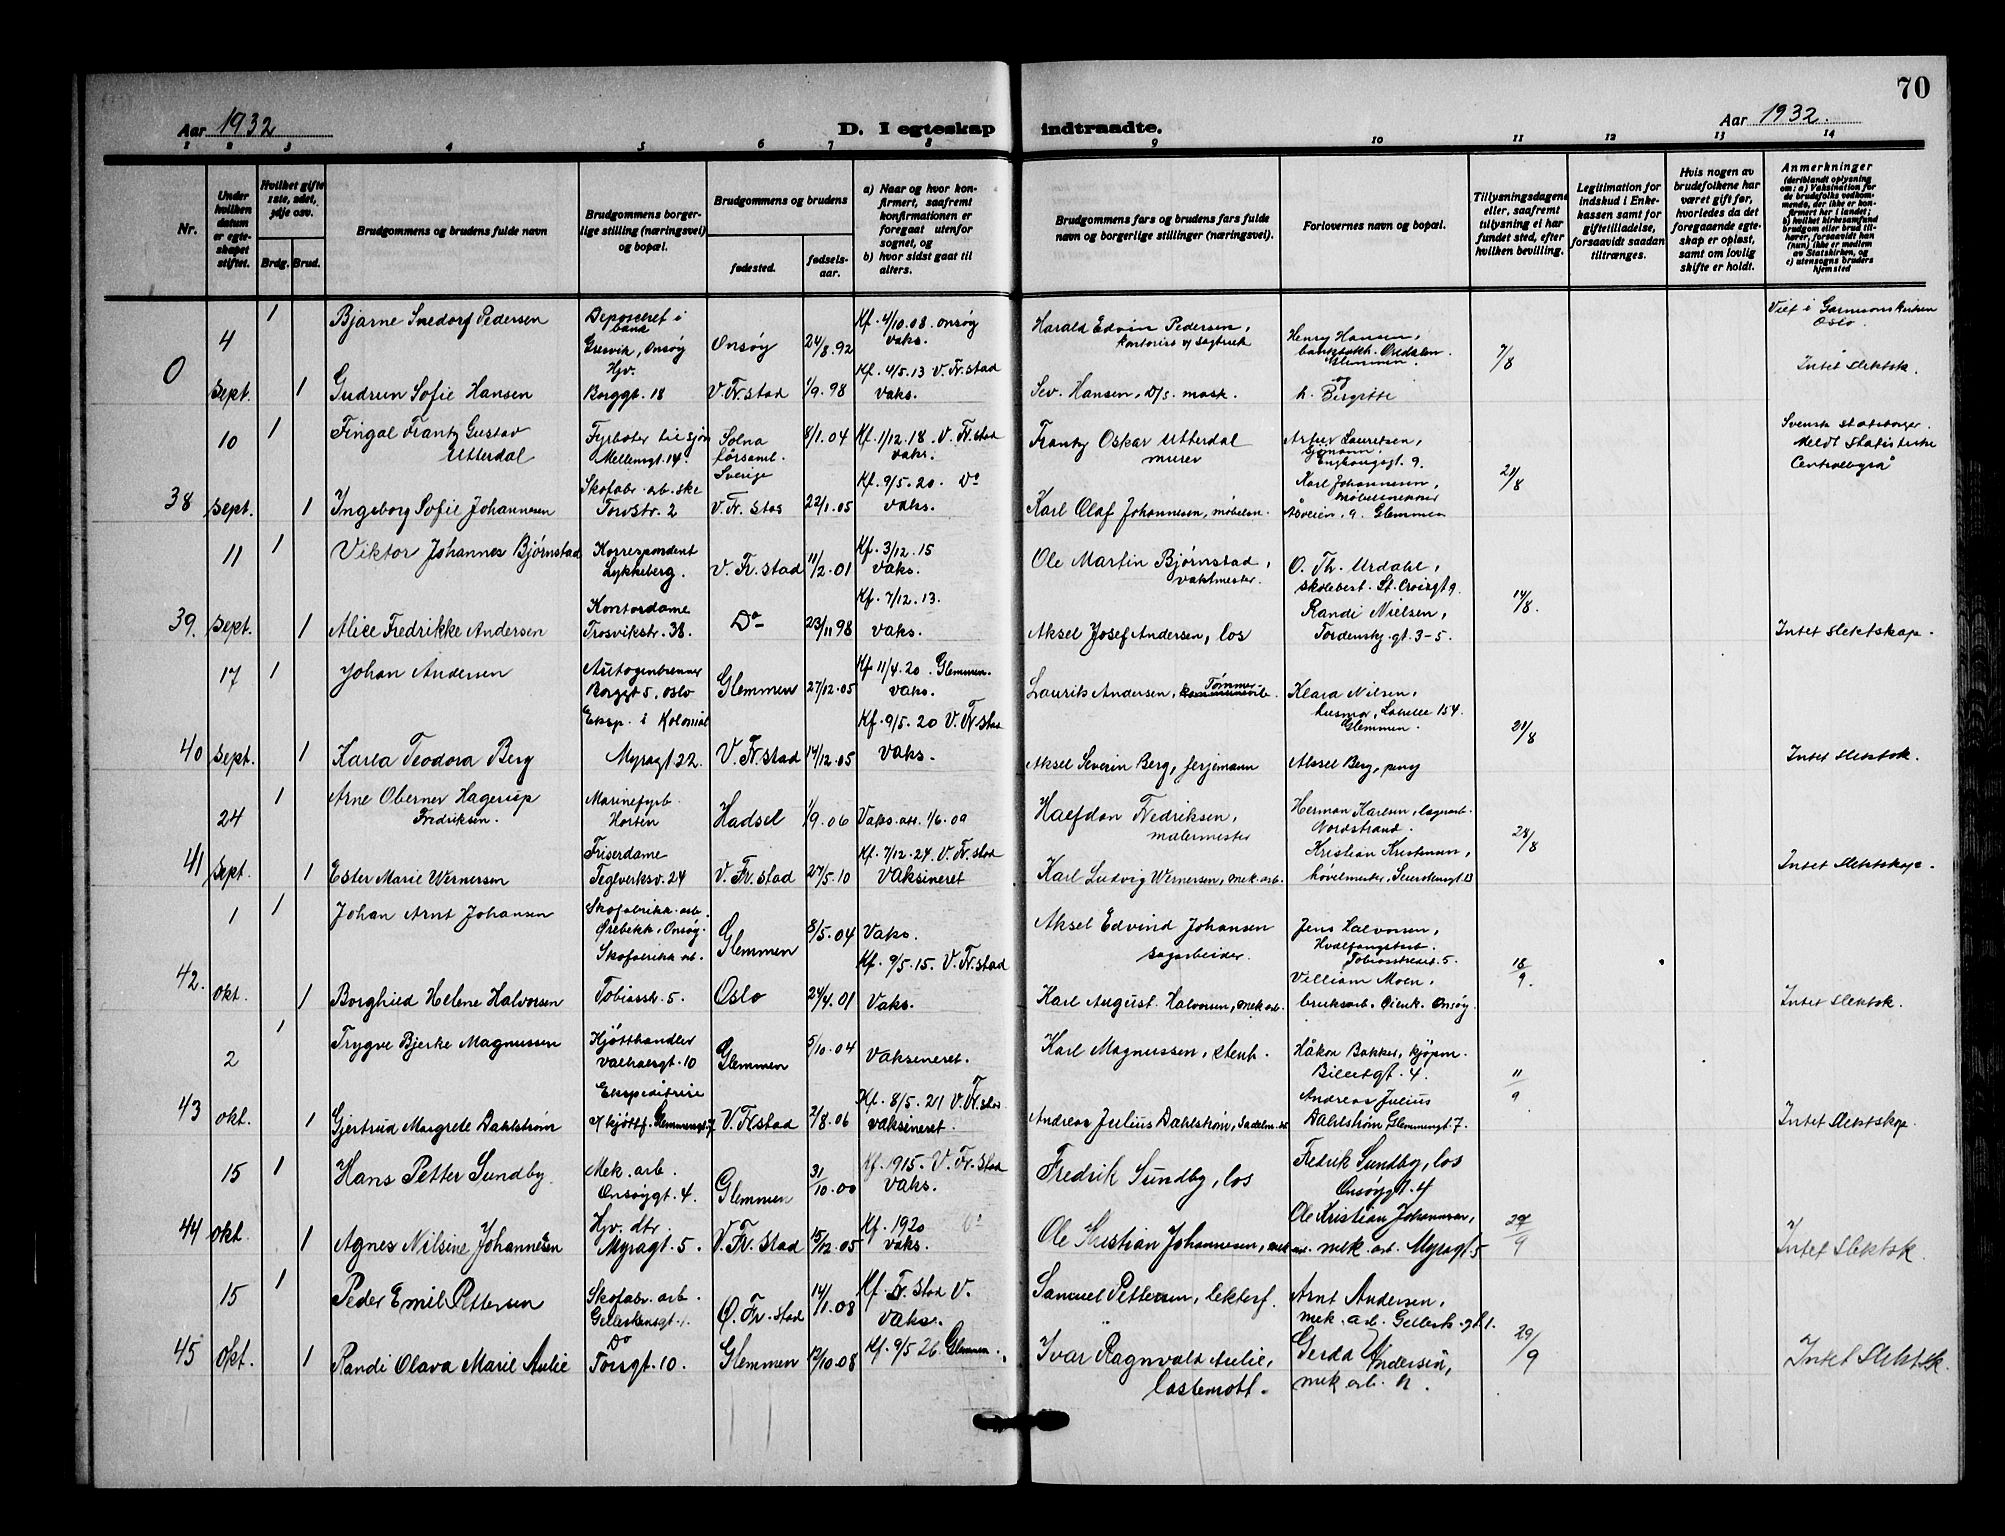 70
Aar 1932
D. I egteskap indtraadte.
Aar 1932.
1 2 3 4 5 6 7 8 9 10 11 12 13 14
Nr.
Under hvilken datum er egteskapet stiftet.
Hvilket gifte 1ste, 2det, 3dje osv.
Brdg. Brud.
Brudgommens og brudens fulde navn
Brudgommens borgerlige stilling (næringsvei) og bopæl.
Brudgommens og brudens
fødested.
fødselsaar.
a) Naar og hvor konfirmert, saafremt konfirmationen er foregaat utenfor sognet, og
b) hvor sidst gaat til alters.
Brudgommens fars og brudens fars fulde navn og borgerlige stillinger (næringsvei).
Forlovernes navn og bopæl.
Tillysningsdagene eller, saafremt tillysning ei har fundet sted, efter hvilken bevilling.
Legitimation for indskud i Enkekassen samt for giftetilladelse, forsaavidt saadan tiltrænges.
Hvis nogen av brudefolkene har været gift før, hvorledes da det foregaaende egteskap er opløst, samt om lovlig skifte er holdt.
Anmerkninger
(deriblandt oplysning om: a) Vaksination for de brudefolks vedkommende, der ikke er konfirmert her i landet; b) hvilket kirkesamfund brudgom eller brud tilhører, forsaavidt han (hun) ikke er medlem av Statskirken, og c) utensogns bruders hjemsted
0
4 Sept.
1 Bjarne Svedorf Pedersen
Deponeret i bank
Gresvik, Onsøy
Onsøy
24/8.92
Kf. 4/10.08. Onsøy
vaks.
Harald Edvin Pedersen,
Henry Hansen,
7/8
Viet i Garnisonskirken
Oslo.
1 Gudrun Sofie Hansen
Hjv.
Borggt. 18
V. Fr.stad
1/9.98
Kf. 4/5.13 V. Fr.stad
vaks.
Sev. Hansen, D/s. mask.
og
h. Birgitte
Intet slektsk.
38
10 Sept.
1 Fingal Frantz Gustav
Utterdal
Fyrbøter til sjøs
Mellemgt. 14.
Solna
församl.
Sverige
8/1.04
Kf. 1/12.18. V. Fr.stad
vaks.
Frantz Oskar Utterdal
murer
Artur Lauritsen,
Sjømann,
Enghaugsgt. 9.
21/8
Svensk statsborger.
Meldt Statistiske
Centralbyrå
1 Ingeborg Sofie Johannesen
Skofabr. arb.ske
Torvstr. 2
V. Fr. stad
22/1.05
Kf. 9/5.20. Do
vaks.
Karl Olaf Johannesen, møbelsn.
Karl Johannesen,
møbelsnekker
Åsveien. 9. Glemmen
39.
11 Sept.
1 Viktor Johannes Bjørnstad
Korrespondent
Lykkeberg.
V. Fr. stad
11/2.01
Kf. 3/12.15
vaks.
Ole Martin Bjørnstad,
vaktmester.
O. Th. Urdahl,
skolebest. St. Croixgt 9.
14/8.
1 Alice Fredrikke Andersen
Kontordame
Trosvikstr. 38.
Do
23/11 98
Kf. 7/12.13.
vaks.
Aksel Josef Andersen, los
Randi Nielsen,
Tordenskj.gt. 3-5.
Intet slektskap.
40
17 Sept.
1 Johan Andersen
Autogenbrenner
Borggt 5, Oslo
Glemmen
27/12.05
Kf. 11/4.20. Glemmen.
vaks.
Laurits Andersen, Tømmer
Klara Nilsen,
husmor, Lahelle 154.
Glemmen.
21/8
1 Karla Teodora Berg
Eksp. i Kolonial
Myragt 22.
V. Fr.stad
14/12.05
Kf. 9/5.20 V. Fr.stad
vaks.
Aksel Severin Berg, ferjemann
Aksel Berg,
Intet slektsk.
41
24 Sept.
1 Arne Oberner Hagerup
Fredriksen.
Marinefyrb.
Horten
Hadsel
1/9.06
Vaks. att. 1/6.09
Halfdan Fredriksen,
malermester
Herman Karlsen, lagerarb.
Nordstrand.
28/8
1 Ester Marie Wernersen
Friserdame
Teglverksv. 24
V. Fr.stad
27/5.10
Kf. 7/12.24. V. Fr.stad
Vaksineret
Karl Ludvig Wernersen, mek.arb.
Kristian Kristensen,
Intet slektskap.
42.
1 okt.
1 Johan Arnt Johansen
Skofabrikk.arb.
Ørebekk, Onsøy.
Glemmen
8/5.04
Vaks.
Aksel Edvind Johansen
sagarbeider.
Jens Halvorsen,
Hvalfangstarb.
Tobiasstredet. 5.
18/9.
1 Borghild Helene Halvorsen
Skofabrikk arb.
Tobiasstr. 5.
Oslo
24/4.01
Kf. 9/5.15. V. Fr.stad
Vaks.
Karl August Halvorsen, mek arb.
Villiam Moen,
bruksarb. Onsøy
Intet slektsk.
43
2 okt.
1 Trygve Bjerke Magnussen
Kjøtthandler
Valhalsgt. 10
Glemmen
5/10.04
Vaksineret.
Karl Magnussen, stenh.
Håkon Bakker, kjøpm.
Billedgt. 4.
11/9
1 Gjertrud Margrete Dahlstrøm
Ekspeditrise
i kjøttf. Glemmengt. 7
V. Fr.stad
2/8.06
Kf. 8/5.21 V. Fr.stad
vaksineret.
Andreas Julius Dahlstrøm, Sadelm.
Andreas Julius
Dahlstrøm Glemmengt 7.
Intet slektskap.
44
15 okt.
1 Hans Petter Sundby.
Mek. arb.
Onsøygt. 4.
Glemmen
31/10.00
Kf. 1915. V. Fr.stad
vaks.
Fredrik Sundby, los
Fredrik Sundby, los
Onsøygt. 4
29/9
1 Agnes Nilsine Johannesen
Hjv. dtr.
Myragt. 5.
V. Fr. stad
15/12.05
Kf. 1920 Do
vaks.
Ole Kristian Johannesen, mek arb.
Ole Kristian Johannesen,
mek. arb. Myragt. 5
Intet slektsk.
45
15 okt.
1 Peder Emil Pettersen
Skofabr. arb.
Gelleskensgt. 1.
Ø. Fr. stad
14/1.08
Kf. Fr. stad V.
Vaks.
Samuel Pettersen, lekterf.
Arnt Andersen,
mek. arb. Gellesk. gt 1.
29/9
1 Randi Olava Marie Aulie
Do
Torsgt. 10.
Glemmen
12/10.08
Kf. 9/5 26. Glemmen.
Ivar Ragnvald Aulie,
lastemott.
Gerda Andersen,
mek arb. h.
Intet slektsk.